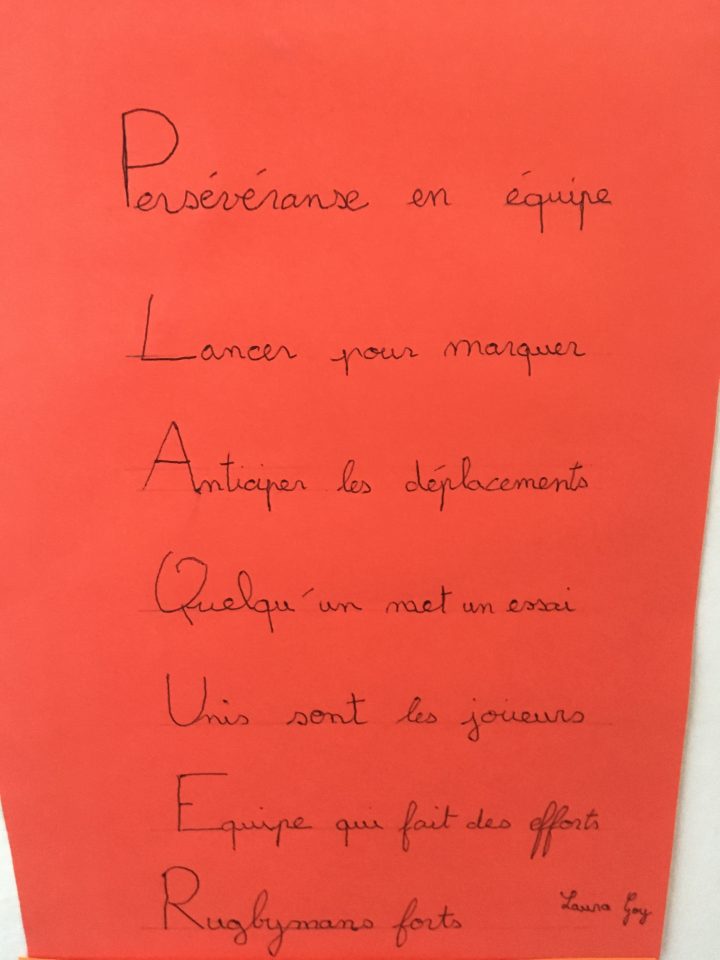 Persévéranse en équipe
Lancer pour marquer
Anticiper les déplacements
Quelqu'un met un essai
Unis sont les joueurs
Equipe qui fait des efforts
Rugbymans forts
Laura Goy